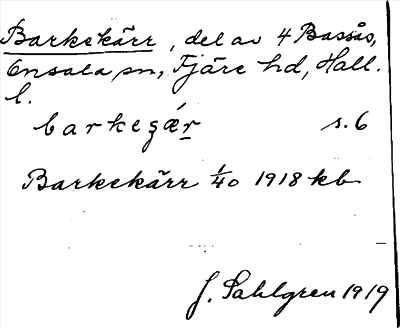 Barkekärr, del av 4 Bassås,
Onsala sn, Fjäre hd, Hall.
l.
barkeçǽr s. 6
Barkekärr 1/40 1918 kb
J. Sahlgren 1919